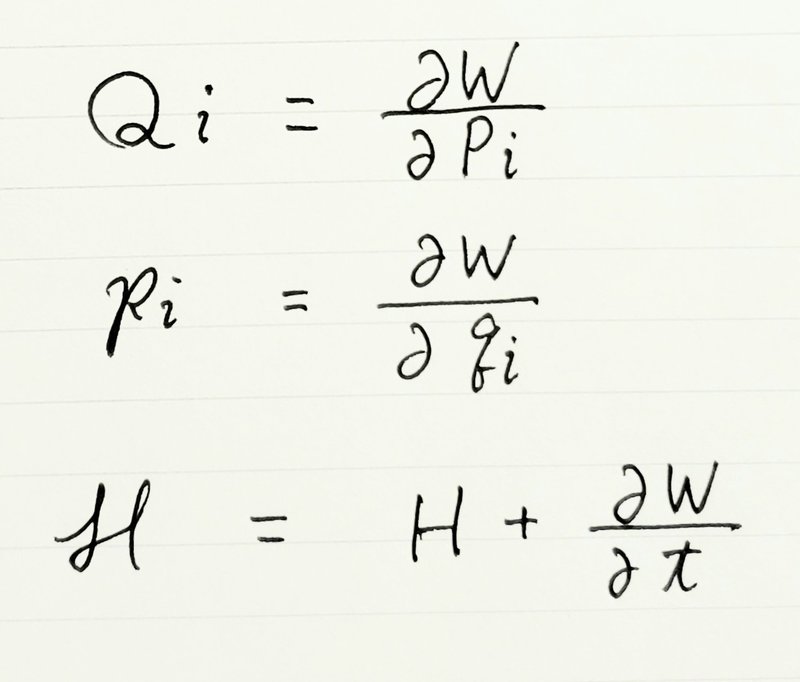 Qi = ∂W/∂Pi
pi = ∂W/∂qi
ℋ = H + ∂W/∂t